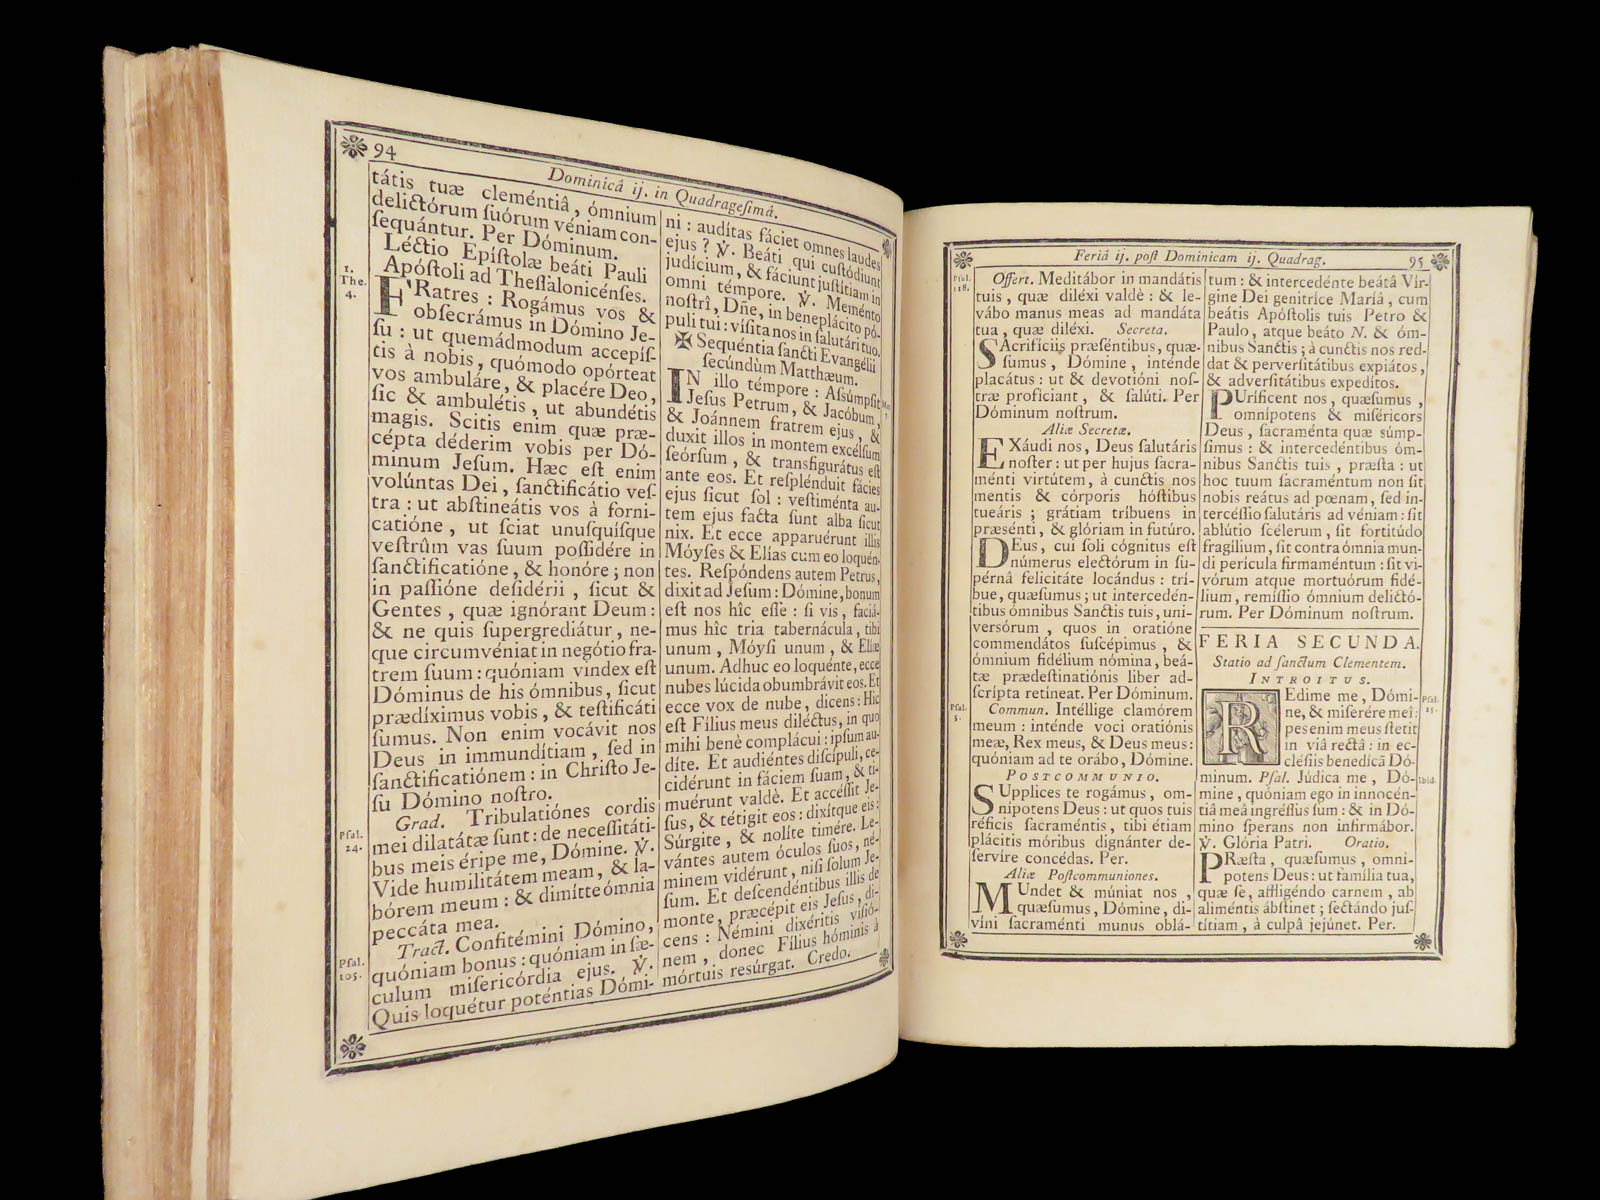 94
Dominicâ ij. in Quadrageſimâ.
tátis tuæ cleméntiâ, ómnium
delictórum ſuórum véniam con-
ſequántur. Per Dóminum.
Léctio Epíſtolæ beáti Pauli
Apóſtoli ad Theſſalonicénſes.
1.
The.
4.
FRatres : Rogámus vos &
obſecrámus in Dómino Je-
ſu : ut quemádmodum accepíſ-
tis à nobis, quómodo opórteat
vos ambuláre, & placére Deo,
ſic & ambulétis, ut abundétis
magis. Scitis enim quæ præ-
cépta déderim vobis per Dó-
minum Jeſum. Hæc eſt enim
volúntas Dei, ſanctificátio veſ-
tra : ut abſtineátis vos à forni-
catióne, ut ſciat unuſquíſque
veſtrûm vas ſuum poſſidére in
ſanctificatióne, & honóre; non
in paſſióne deſidérii, ſicut &
Gentes, quæ ignórant Deum:
& ne quis ſupergrediátur, ne-
que circumvéniat in negótio fra-
trem ſuum : quóniam vindex eſt
Dóminus de his ómnibus, ſicut
prædíximus vobis, & teſtificáti
ſumus. Non enim vocávit nos
Deus in immundítiam, ſed in
ſanctificatiónem : in Chriſto Je-
ſu Dómino noſtro.
Pſal.
24.
Grad. Tribulatiónes cordis
mei dilatátæ ſunt : de neceſſitáti-
bus meis éripe me, Dómine. ℣.
Vide humilitátem meam, & la-
bórem meum : & dimítte ómnia
peccáta mea.
Pſal.
105.
Tract. Confitémini Dómino,
quóniam bonus : quóniam in ſæ-
culum miſericórdia ejus. ℣.
Quis loquétur poténtias Dómi-
ni : audítas fáciet omnes laudes
ejus ? ℣. Beáti qui cuſtódiunt
judícium, & fáciunt juſtítiam in
omni témpore. ℣. Meménto
noſtrî, Dñe, in beneplácito pó-
puli tui : víſita nos in ſalutári tuo.
✠ Sequéntia ſancti Evangélii
ſecúndùm Matthæum.
IN illo témpore : Aſſúmpſit
Jeſus Petrum, & Jacóbum,
& Joánnem fratrem ejus, &
duxit illos in montem excélſum
ſeórſum, & transfigurátus eſt
ante eos. Et reſplénduit fácies
ejus ſicut ſol : veſtiménta au-
tem ejus facta ſunt alba ſicut
nix. Et ecce apparuérunt illis
Móyſes & Elías cum eo loquén-
tes. Reſpóndens autem Petrus,
dixit ad Jeſum : Dómine, bonum
eſt nos hîc eſſe : ſi vis, faciá-
mus hîc tria tabernácula, tibi
unum, Móyſi unum, & Elíæ
unum. Adhuc eo loquénte, ecce
nubes lúcida obumbrávit eos. Et
ecce vox de nube, dicens : Hic
eſt Fílius meus diléctus, in quo
mihi benè complácui : ipſum au-
díte. Et audiéntes diſcípuli, ce-
cidérunt in fáciem ſuam, & ti-
muérunt valdè. Et acceſſit Je-
ſus, & tétigit eos : dixítque eis :
Súrgite, & nolíte timére. Le-
vántes autem óculos ſuos, né-
minem vidérunt, niſi ſolum Je-
ſum. Et deſcendéntibus illis de
monte, præcépit eis Jeſus, di-
cens : Némini dixéritis viſió-
nem, donec Fílius hóminis à
mórtuis resúrgat. Credo.
Feriâ ij. poſt Dominicam ij. Quadrag.
95
Pſal.
118.
Offert. Meditábor in mandátis
tuis, quæ diléxi valdè : & le-
vábo manus meas ad mandáta
tua, quæ diléxi. Secreta.
SAcrifíciis præſéntibus, quæ-
ſumus, Dómine, inténde
placátus : ut & devotióni noſ-
træ profíciant, & ſalúti. Per
Dóminum noſtrum.
Aliæ Secretæ.
EXáudi nos, Deus ſalutáris
noſter : ut per hujus ſacra-
ménti virtútem, à cunctis nos
mentis & córporis hóſtibus
tueáris ; grátiam tríbuens in
præsénti, & glóriam in futúro.
DEus, cui ſoli cógnitus eſt
númerus electórum in ſu-
pérnâ felicitáte locándus : trí-
bue, quæſumus ; ut intercedén-
tibus ómnibus Sanctis tuis, uni-
versórum, quos in oratióne
commendátos ſuſcépimus, &
ómnium fidélium nómina, beá-
tæ prædeſtinatiónis liber ad-
ſcrípta retíneat. Per Dóminum.
Pſal.
5.
Commun. Intéllige clamórem
meum : inténde voci oratiónis
meæ, Rex meus, & Deus meus :
quóniam ad te orábo, Dómine.
POSTCOMMUNIO.
SUpplices te rogámus, om-
nípotens Deus : ut quos tuis
réficis ſacraméntis, tibi étiam
plácitis móribus dignánter de-
ſervíre concédas. Per.
Aliæ Poſtcommuniones.
MUndet & múniat nos,
quæſumus, Dómine, di-
víni ſacraménti munus oblá-
tum : & intercedénte beátâ Vír-
gine Dei genitríce Maríâ, cum
beátis Apóſtolis tuis Petro &
Paulo, atque beáto N. & óm-
nibus Sanctis ; à cunctis nos red-
dat & perverſitátibus expiátos,
& adverſitátibus expeditos.
PUríficent nos, quæſumus,
omnípotens & miſéricors
Deus, ſacraménta quæ súmp-
ſimus : & intercedéntibus óm-
nibus Sanctis tuis, præſta : ut
hoc tuum ſacraméntum non ſit
nobis reátus ad pœnam, ſed in-
terceſſio ſalutáris ad véniam : ſit
ablútio ſcélerum, ſit fortitúdo
fragílium, ſit contra ómnia mun-
di perícula firmaméntum : ſit vi-
vórum atque mortuórum fidé-
lium, remíſſio ómnium delictó-
rum. Per Dóminum noſtrum.
FERIA SECUNDA.
Statio ad ſanctum Clementem.
INTROITUS.
REdime me, Dómi-
ne, & miſerére meî :
pes enim meus ſtetit
in viâ rectâ : in ec-
cléſiis benedícâ Dó-
minum. Pſal. Júdica me, Dó-
mine, quóniam ego in innocén-
tiâ meâ ingréſſus ſum : & in Dó-
mino ſperans non infirmábor.
℣. Glória Patri. Oratio.
Pſal.
25.
Ibid.
PRæſta, quæſumus, omní-
potens Deus : ut família tua,
quæ ſe, affligéndo carnem, ab
aliméntis ábſtinet ; ſectándo juſ-
títiam, à culpâ jejúnet. Per.